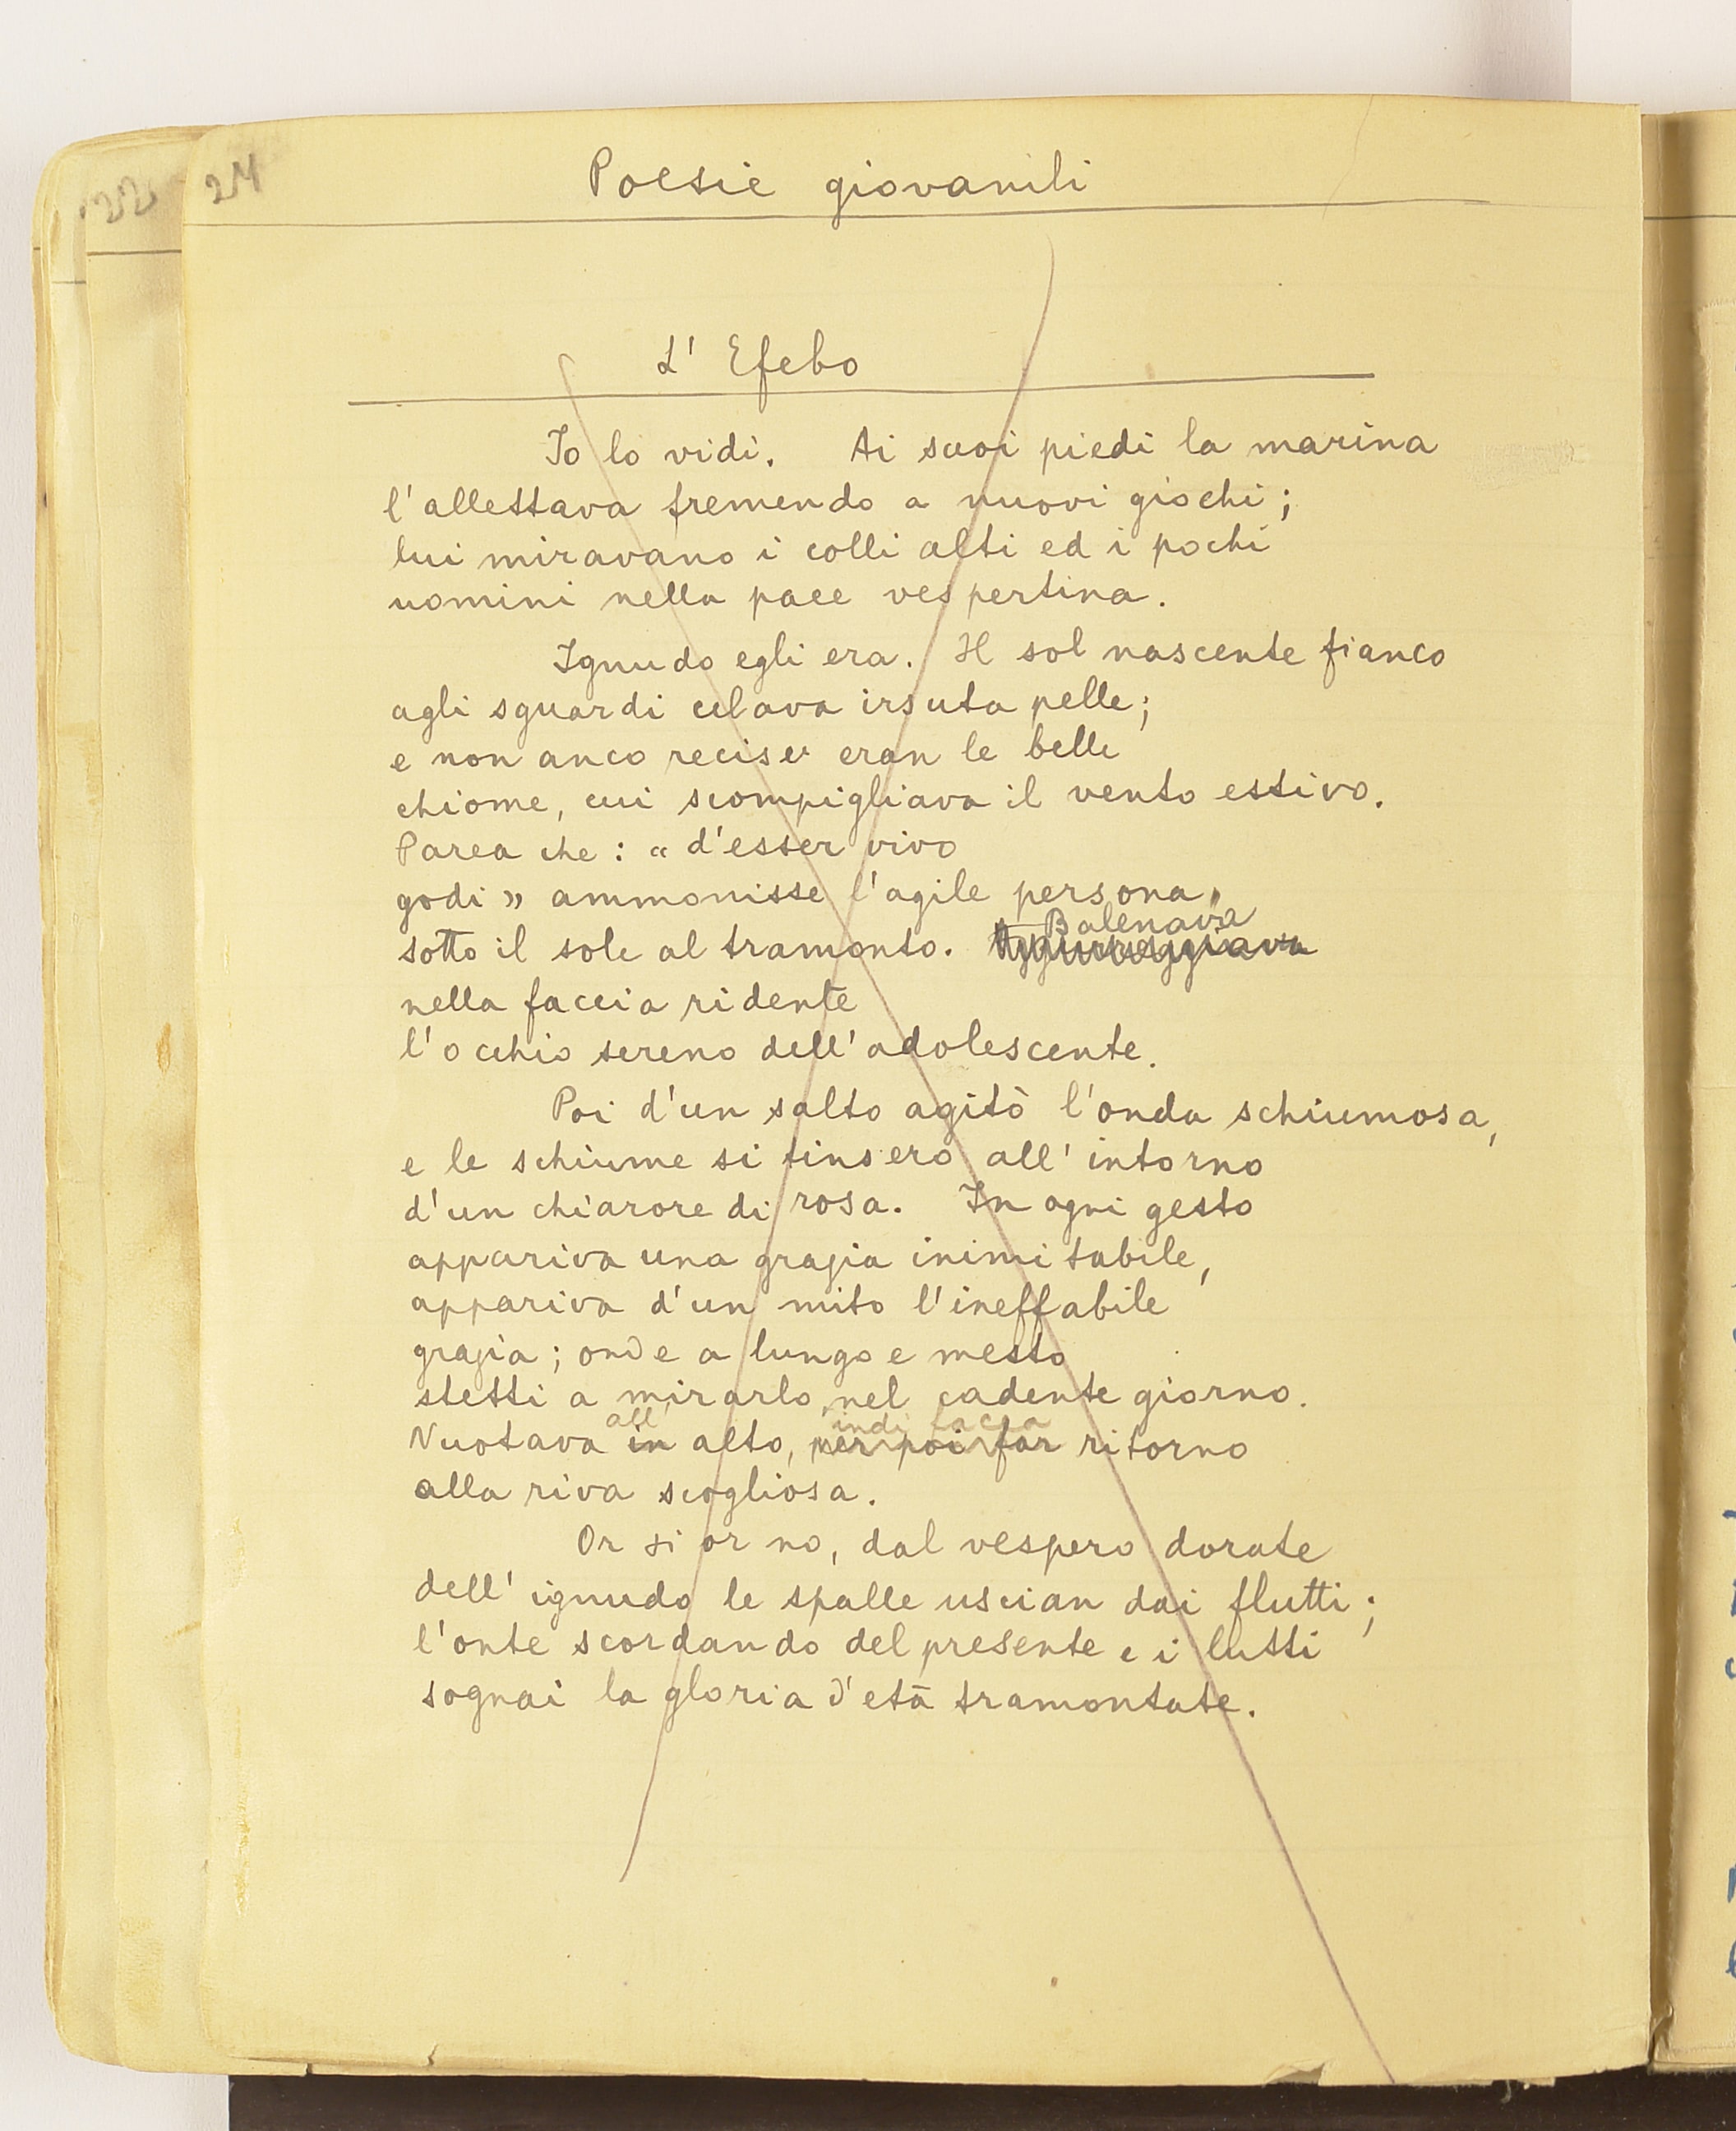 22
24
Poesie giovanili
L' Efebo
Io lo vidi. Ai suoi piedi la marina
l'allettava fremendo a nuovi giochi;
lui miravano i colli alti ed i pochi
uomini nella pace vespertina.
Ignudo egli era. Il sol nascente fianco
agli sguardi celava irsuta pelle;
e non anco recise eran le belle
chiome, cui scompigliava il vento estivo.
Parea che: « d'esser vivo
godi » ammonisse l'agile persona,
Balenava
sotto il sole al tramonto.
nella faccia ridente
l'occhio sereno dell'adolescente.
Poi d'un salto agitò l'onda schiumosa,
e le schiume si tinsero all' intorno
d'un chiarore di rosa. In ogni gesto
appariva una grazia inimitabile,
appariva d'un mito l'ineffabile
grazia; onde a lungo e mesto
stetti a mirarlo nel cadente giorno.
all' indi facea
Nuotava in alto, per poi far ritorno
alla riva scogliosa.
Or sì or no, dal vespero dorate
dell' ignudo le spalle uscian dai flutti;
l'onte scordando del presente e i lutti
sognai la gloria d'età tramontate.